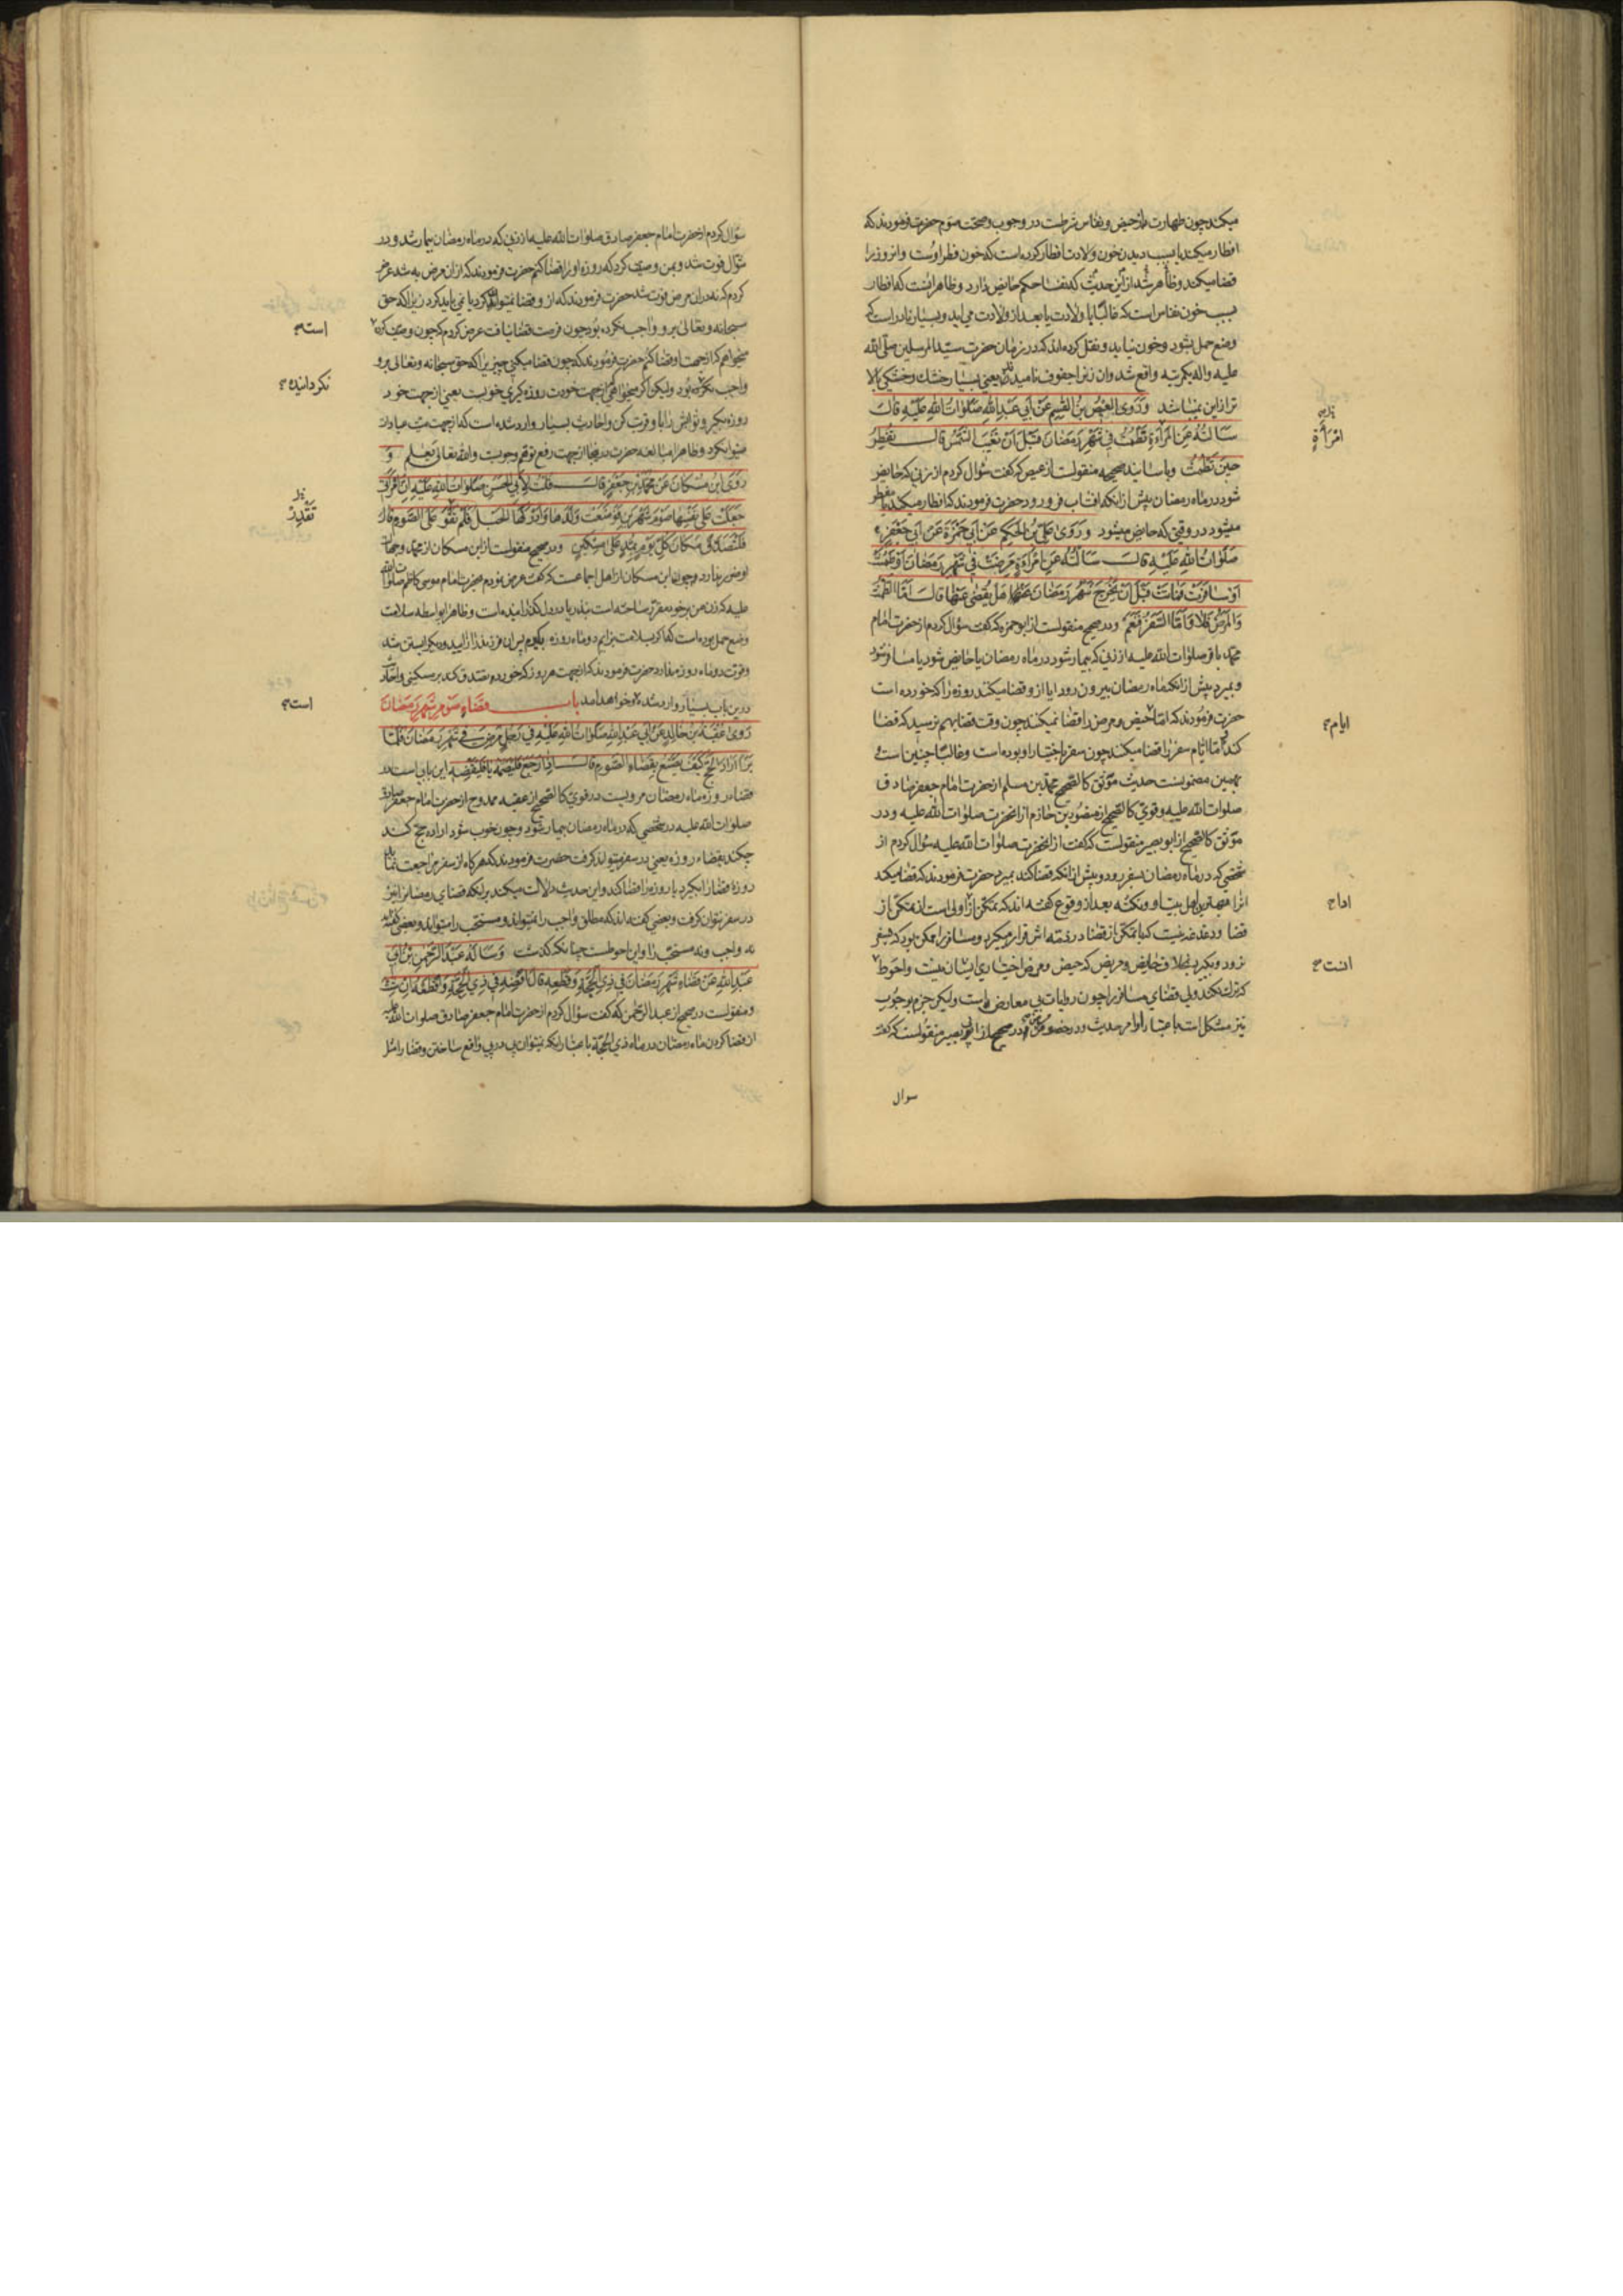 میکند چون طهارت از حیض و نفاس شرطست در وجوب و صحت صوم حضرت فرمودند که
افطار میکند یا بسبب دیدن خون ولادت افطار کرده است که خون فطر اوست و انروز را
قضا میکند و ظاهر شد از این حدیث که نفسا حکم حایض دارد و ظاهر انست که افطار
بسبب خون نفاس است که غالبا با ولادت یا بعد از ولادت می اید و بسیار نادر است که
وضع حمل بشود و خون نیاید و نقل کرده اند که در زمان حضرت سید المرسلین صلی الله
علیه واله یکمرتبه واقع شد وان زنرا جفوف نامیدند یعنی بسیار خشک و خشکی بالا
تر ازاین نمیباشد وَرَوَی العِیصُ بنُ القٰسِمِ عَنْ اَبی عَبدِاللهِ صَلَوٰاتُ اللهِ عَلَیْهِ قالَ
سَاَلتُهُ عَنِ المَرْاَةِ تَطْمُثُ فِی شَهْرِ رَمَضانَ قَبْلَ اَنْ تَغیبَ الشَّمْسُ قالَ تُفْطِرُ
حینَ تَطْمَثُ وباسانید صحیحه منقولست از عیص که گفت سؤال کردم از زنی که حایض
شود در ماه رمضان پیش از انکه افتاب فرو رود حضرت فرمودند که افطار میکند یا مفطر
میشود در وقتی که حایض میشود وَرَوَی عَلیُّ بْنُ الحَکَمِ عَنْ اَبی حَمْزَةَ عَنْ اَبی جَعْفَرٍ
صَلَوٰاتُ اللهِ عَلَیْهِ قالَ سَاَلْتُهُ عَنِ امْرَاَةٍ مَرِضَتْ فی شَهْرِ رَمَضانَ اَوْ طَمِثَتْ
اَوْ سافَرَتْ فَماتَتْ قَبْلَ اَنْ یَخْرُجَ شَهْرُ رَمَضانَ هَلْ یُقْضیٰ عَنْها قالَ اَمَّا الطَّمْثُ
وَالمَرَضُ فَلا وَاَمَّا السَّفَرُ فَنَعَمْ ودر صحیح منقولست از ابو حمزه که گفت سؤال کردم از حضرت امام
محمد باقر صلوات الله علیه از زنی که بیمار شود در ماه رمضان یا حایض شود یا مسافر شود
و بمیرد پیش از انکه ماه رمضان بیرون رود ایا از و قضا میکند روزه را که خورده است
حضرت فرمودند که اما حیض و مرض را قضا نمیکند چون وقت قضا بهم نرسید که قضا
کند و اما ایام سفر را قضا میکند چون سفر باختیار او بوده است و غالبا چنین است و
بهمین مضمونست حدیث موثق کالصحیح محمد بن مسلم از حضرت امام جعفر صادق
صلوات الله علیه و قوی کالصحیح از منصور بن حازم از انحضرت صلوات الله علیه و در
موثق کالصحیح از ابو بصیر منقولست که گفت از انحضرت صلوات الله علیه سؤال کردم از
شخصی که در ماه رمضان بسفر رود و پیش از انکه قضا کند بمیرد حضرت فرمودند که قضا میکند
انرا بهترین اهل بیت او و نکته بعد از وقوع گفته اند که تمکن از اولی است از تمکن از
قضا و دغدغه نیست که با تمکن از قضا در ذمه اش قرار میگیرد و مسافر را ممکن بود که بسفر
نرود و بگیرد بخلاف حایض و مریض که حیض و مرض اختیاری ایشان نیست واحوط
که ترک نکند ولی قضای مسافر را چون روایات بی معارض است ولیکن جزم بوجوب
نیز مشکل است باعتبار اوامر حدیث و در خصوص در صحیح از ابو بصیر منقولست که گفت
سوال
امْرَأَةٍ
ایام
اداح
انت
سؤال کردم از حضرت امام جعفر صادق صلوات الله علیه از زنی که در ماه رمضان بیمار شد و در
شوال فوت شد و بمن وصیت کرد که روزه او را قضا کنم حضرت فرمودند که ازان مرض به شد عرض
کردم که نه دران مرض فوت شد حضرت فرمودند که از و قضا نمیتواند کرد یا نمی باید کرد زیرا که حق
سبحانه وتعالی برو واجب نکرده بود چون فرصت قضا نیافت عرض کردم که چون وصیت کرده
میخواهم که از جهت او قضا کنم حضرت فرمودند که چون قضا میکنی چیزیرا که حق سبحانه وتعالی برو
واجب نکرده بود ولیکن اگر میخواهی از جهت خودت روزه گیری خوبست یعنی از جهت خود
روزه بگیر و ثوابش را باو قربت کن واحادیث بسیار وارد شده است که از جهت میت عبادات
میتوان کرد و ظاهرا مبالغه حضرت در اینجا از جهت رفع توهم وجوبست والله تعالی یعلم وَ
رَوَی ابْنُ مُسْکانَ عَنْ مُحَمَّدِ بْنِ جَعْفَرٍ قالَ قُلْتُ لِاَبِی الحَسَنِ صَلَوٰاتُ اللهِ عَلَیْهِ اِنَّ امْرَاَتی
جَعَلَتْ عَلیٰ نَفْسِها صَوْمَ شَهْرَیْنِ فَوَضَعَتْ وَلَدَها وَاَدْرَکَهَا الحَبَلُ فَلَمْ تَقْوَ عَلَی الصَّوْمِ قالَ
فَلْتَصَدَّقْ مَکانَ کُلِّ یَوْمٍ بِمُدٍّ عَلیٰ مِسْکینٍ ودر صحیح منقولست از ابن مسکان از محمد و جهالت
او ضرر ندارد چون ابن مسکان از اهل اجماعست که گفت عرض نمودم بحضرت امام موسی کاظم صلوات الله
علیه که زن من برخود مقرر ساخته است بنذر یا در دل گذرانیده است و ظاهرا بواسطه سلامت
وضع حمل بوده است که اگر بسلامت بزایم دو ماه روزه بگیرم پس ان فرزند را زایید و دیگر ابستن شد
وقوت دو ماه روزه ندارد حضرت فرمودند که از جهت هر روز که خورده بمد تصدق کند بر مسکینی واخبار
درین باب بسیار وارد شده وخواهد امد باب قَضاءِ صَوْمِ شَهْرِ رَمَضانَ
رَوَی عُقْبَةُ بْنُ خالِدٍ عَنْ اَبی عَبْدِاللهِ صَلَوٰاتُ اللهِ عَلَیْهِ فی رَجُلٍ مَرِضَ فی شَهْرِ رَمَضانَ فَلَمَّا
بَرَاَ اَرادَ الحَجَّ کَیْفَ یَصْنَعُ بِقَضاءِ الصَّوْمِ قالَ اِذا رَجَعَ فَلْیَصُمْهُ یا فلیقضه این بابی است در
قضاء روزه ماه رمضان مرویست در قوی کالصحیح از عقبه ممدوح از حضرت امام جعفر صادق
صلوات الله علیه در شخصی که در ماه رمضان بیمار شود و چون خوب شود اراده حج کند
چکند بقضاء روزه یعنی در سفر میتواند گرفت حضرت فرمودند که هرگاه از سفر مراجعت نماید
روزه قضا را بگیرد یا روزه را قضا کند واین حدیث دلالت میکند بر اینکه قضای رمضانرا نیز
در سفر نتوان گرفت و بعضی گفته اند که مطلق واجب را نمیتواند و مستحب را میتواند و بعضی گفته اند
نه واجب ونه مستحب را واین احوطست چنانکه گذشت وَسَاَلَهُ عَبْدُالرَّحْمٰنِ بْنُ اَبی
عَبْدِاللهِ عَنْ قَضاءِ شَهْرِ رَمَضانَ فی ذِی الحِجَّةِ وَقَطْعِهِ قالَ اقْضِهِ فی ذِی الحِجَّةِ وَاقْطَعْهُ اِنْ شِئْتَ
ومنقولست در صحیح از عبدالرحمن که گفت سؤال کردم از حضرت امام جعفر صادق صلوات الله علیه
از قضا کردن ماه رمضان در ماه ذی الحجة باعتبار انکه نمیتوان پی در پی واقع ساختن وقضا را مثل
است
نکردانیده
تَقْدِرْ
است